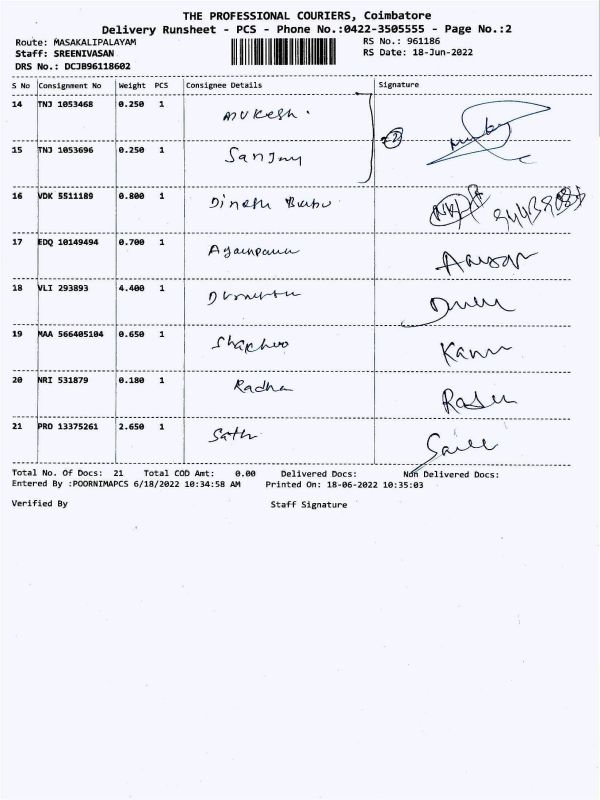 THE PROFESSIONAL COURIERS, Coimbatore
Delivery Runsheet - PCS - Phone No.:0422-3505555 - Page No.:2
Route: MASAKALIPALAYAM RS No.: 961186
Staff: SREENIVASAN RS Date: 18-Jun-2022
DRS No.: DCJB96118602
S No Consignment No Weight PCS Consignee Details Signature
14 TNJ 1053468 0.250 1 Mukesh
15 TNJ 1053696 0.250 1 Sanjay
16 VDK 5511189 0.800 1 Dinesh Babu
17 EDQ 10149494 0.700 1
18 VLI 293893 4.400 1
19 MAA 566405104 0.650 1
20 NRI 531879 0.180 1 Radha
21 PRO 13375261 2.650 1
Total No. Of Docs: 21 Total COD Amt: 0.00 Delivered Docs: Non Delivered Docs:
Entered By :POORNIMAPCS 6/18/2022 10:34:58 AM Printed On: 18-06-2022 10:35:03
Verified By Staff Signature